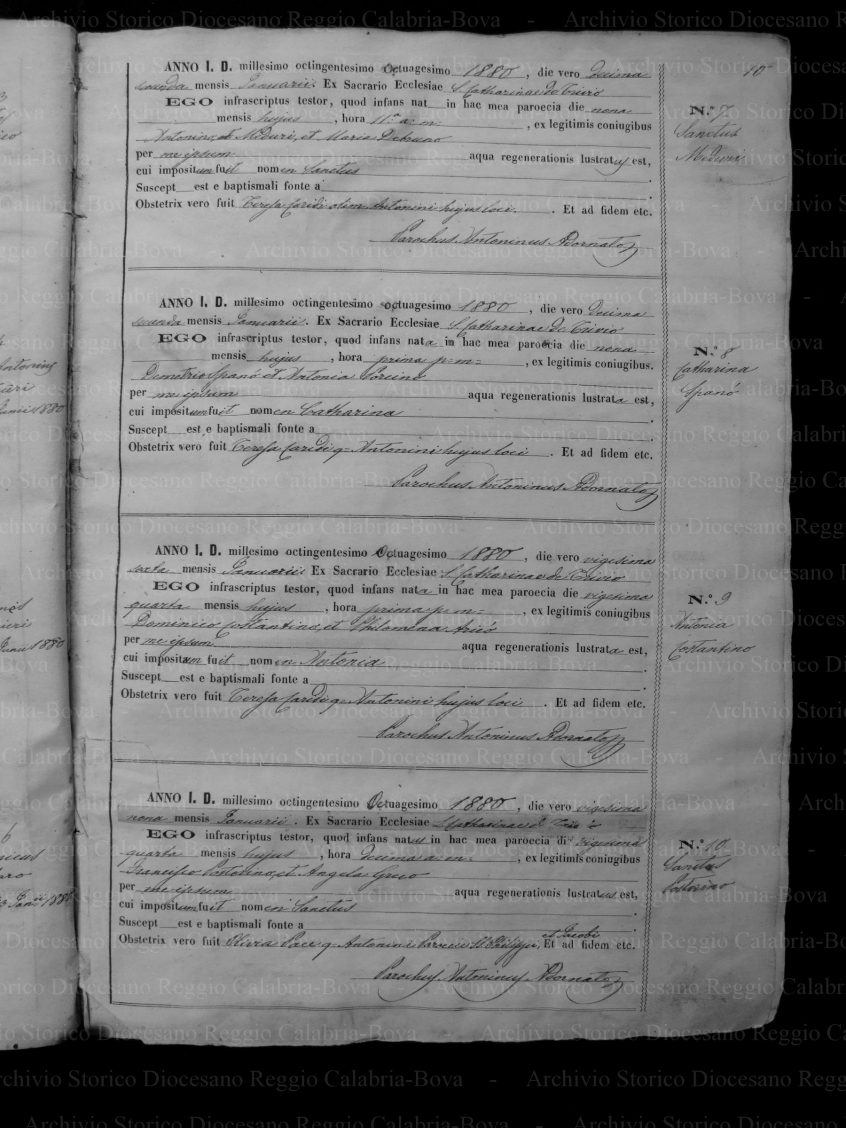 10
ANNO I. D. millesimo octingentesimo Octuagesimo 1880, die vero Decima
secunda mensis Januarii. Ex Sacrario Ecclesiae S. Catharinae de Trivio
EGO infrascriptus testor, quod infans nat in hac mea paroecia die nona
mensis hujus, hora 11.a a. m., ex legitimis coniugibus
Antonino et Meduri, et Maria
per me ipsum aqua regenerationis lustratus est,
cui impositum fuit nomen Sanctus
Suscept est e baptismali fonte a
Obstetrix vero fuit Teresa Caridi olim Antonini hujus loci. Et ad fidem etc.
Parochus Antoninus Adornato
N.° 7
Sanctus
Meduri
ANNO I. D. millesimo octingentesimo octuagesimo 1880, die vero Decima
secunda mensis Januarii. Ex Sacrario Ecclesiae S. Catharinae de Trivio
EGO infrascriptus testor, quod infans nata in hac mea paroecia die nona
mensis hujus, hora prima p. m., ex legitimis coniugibus.
Demetrio Spanò et Antonia Porcino
per me ipsum aqua regenerationis lustrata est,
cui impositum fuit nomen Catharina
Suscept est e baptismali fonte a
Obstetrix vero fuit Teresa Caridi q. Antonini hujus loci. Et ad fidem etc.
Parochus Antoninus Adornato
N.° 8
Catharina
Spanò
ANNO I. D. millesimo octingentesimo Octuagesimo 1880, die vero vigesima
sexta mensis Januarii. Ex Sacrario Ecclesiae S. Catharinae de Trivio
EGO infrascriptus testor, quod infans nata in hac mea paroecia die vigesima
quarta mensis hujus, hora prima p. m., ex legitimis coniugibus
Dominico Costantino, et Philomena Aricò
per me ipsum aqua regenerationis lustrata est,
cui impositum fuit nomen Antonia
Suscept est e baptismali fonte a
Obstetrix vero fuit Teresa Caridi q. Antonini hujus loci. Et ad fidem etc.
Parochus Antoninus Adornato
N.° 9
Antonia
Costantino
ANNO I. D. millesimo octingentesimo Octuagesimo 1880, die vero vigesima
nona mensis Januarii. Ex Sacrario Ecclesiae S. Catharinae
EGO infrascriptus testor, quod infans natus in hac mea paroecia di vigesima
quarta mensis hujus, hora Decima a. m., ex legitimis coniugibus
Francisco Costorino, et Angela Greco
per me ipsum aqua regenerationis lustratus est,
cui impositum fuit nomen Sanctus
Suscept est e baptismali fonte a
Obstetrix vero fuit Olivia Pace q. Antonini Paroecie SS. Philippi, et Jacobi Et ad fidem etc.
Parochus Antoninus Adornato
N.° 10
Sanctus
Costorino
Archivio Storico Diocesano Reggio Calabria-Bova